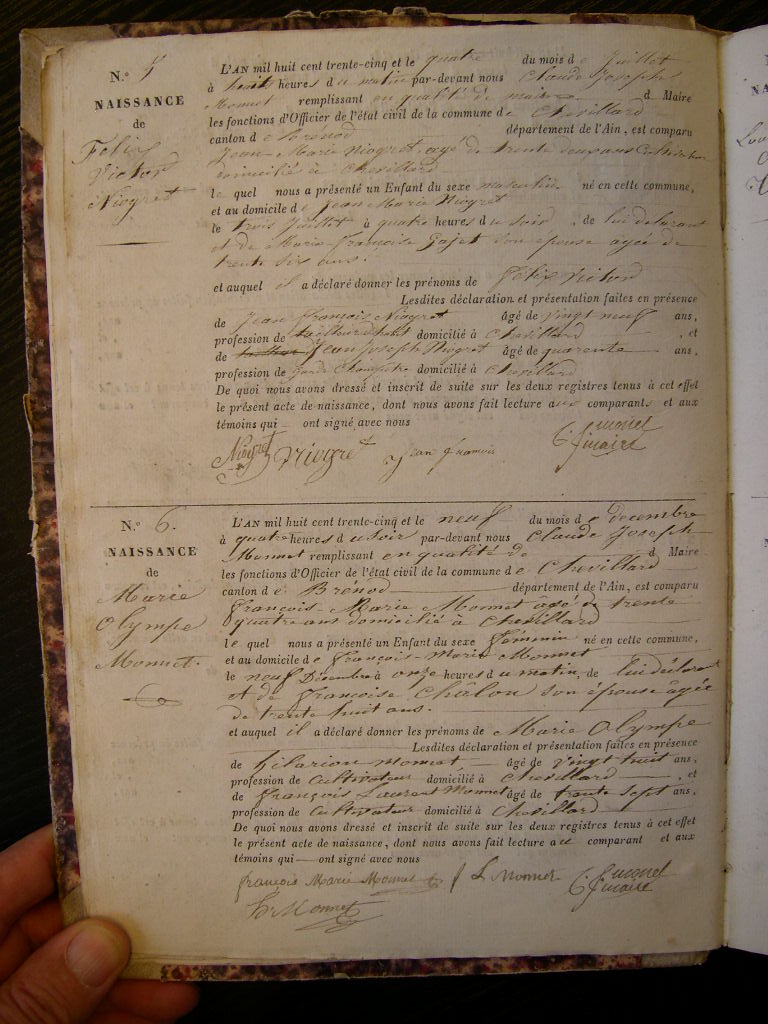 N.º 5
NAISSANCE
de
Félix
Victor
Niogret
L'AN mil huit cent trente-cinq et le quatre du mois de Juillet
à huit heures du matin par-devant nous Claude Joseph
Monnet remplissant en qualité de maire d Maire
les fonctions d'Officier de l'état civil de la commune de Chevillard
canton de Brénod département de l'Ain, est comparu
Jean-Marie Niogret agé de trente deux ans Cultivateur
domicilié à Chevillard
le quel nous a présenté un Enfant du sexe masculin né en cette commune,
et au domicile de Jean Marie Niogret
le trois Juillet à quatre heures du soir, de lui déclarant
et de Marie-Françoise Gajet son épouse agée de
trente six ans.
et auquel il a déclaré donner les prénoms de Félix Victor
Lesdites déclaration et présentation faites en présence
de Jean François Niogret âgé de vingt neuf ans,
profession de domicilié à Chevillard, et
de Jean Joseph Niogret âgé de quarente ans,
profession de Garde Champêtre domicilié à Chevillard
De quoi nous avons dressé et inscrit de suite sur les deux registres tenus à cet effet
le présent acte de naissance, dont nous avons fait lecture aux comparants et aux
témoins qui ont signé avec nous
Niogret Niogret Jean françois C. J. monnet
maire
N.º 6.
NAISSANCE
de
Marie
Olympe
Monnet.
L'AN mil huit cent trente-cinq et le neuf du mois de decembre
à quatre heures du soir par-devant nous Claude Joseph
Monnet remplissant en qualité de d Maire
les fonctions d'Officier de l'état civil de la commune de Chevillard
canton de Brénod département de l'Ain, est comparu
François Marie Monnet agé de trente
quatre ans domicilié à Chevillard
le quel nous a présenté un Enfant du sexe féminin né en cette commune,
et au domicile de François-Marie Monnet
le neuf Décembre à onze heures du matin, de lui déclarant
et de Françoise Châlon son épouse agée
de trente huit ans.
et auquel il a déclaré donner les prénoms de Marie Olympe
Lesdites déclaration et présentation faites en présence
de hilarion monnet âgé de vingt huit ans,
profession de Cultivateur domicilié à Chevillard, et
de françois Laurent Monnet âgé de trente sept ans,
profession de Cultivateur domicilié à Chevillard
De quoi nous avons dressé et inscrit de suite sur les deux registres tenus à cet effet
le présent acte de naissance, dont nous avons fait lecture au comparant et aux
témoins qui ont signé avec nous
françois Marie Monnet f L Monnet C. J. monnet
maire
h. Monnet